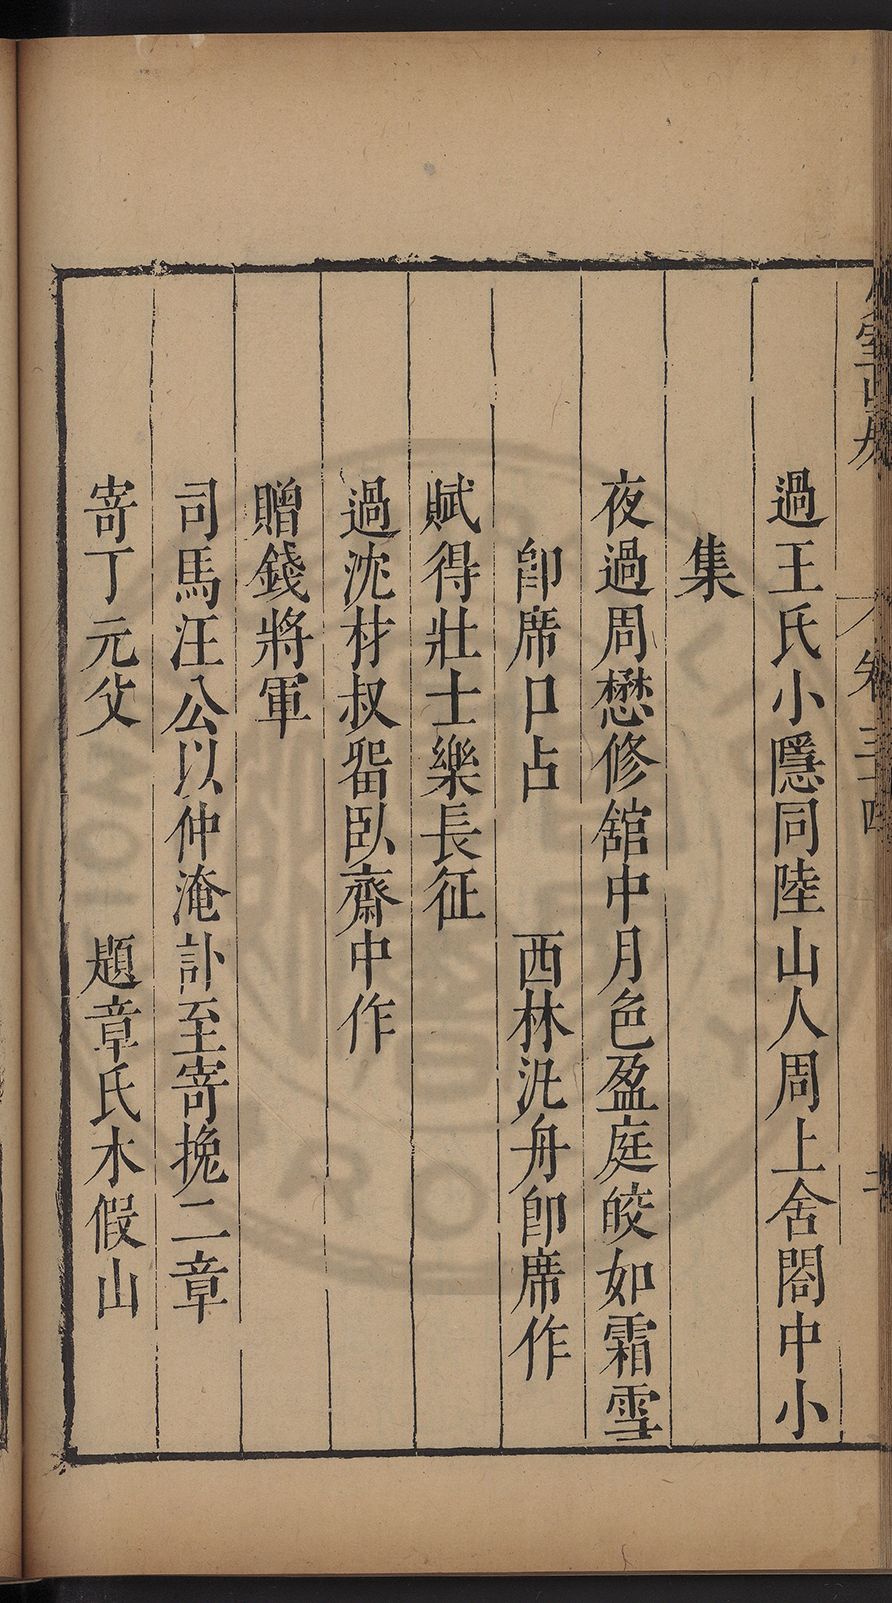 過王氏小隱同陸山人周上舍閣中小
集
夜過周懋修舘中月色盈庭皎如霜雪
卽席口占　西林汎舟卽席作
賦得壯士樂長征
過沈材叔畱臥齋中作
贈錢將軍
司馬汪公以仲淹訃至寄挽二章
寄丁元父　題章氏木假山